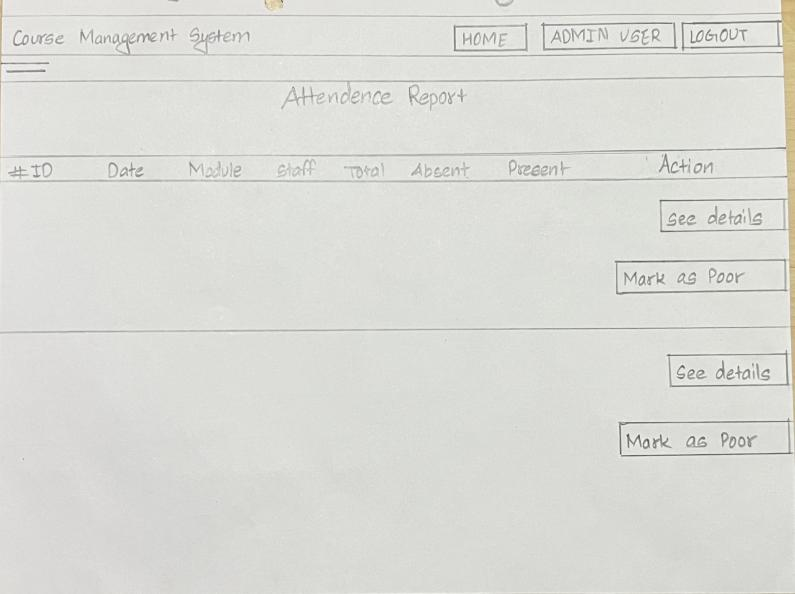 Course Management System HOME ADMIN USER LOGOUT
Attendence Report
#ID Date Module Staff Total Absent Present Action
See details
Mark as Poor
See details
Mark as Poor